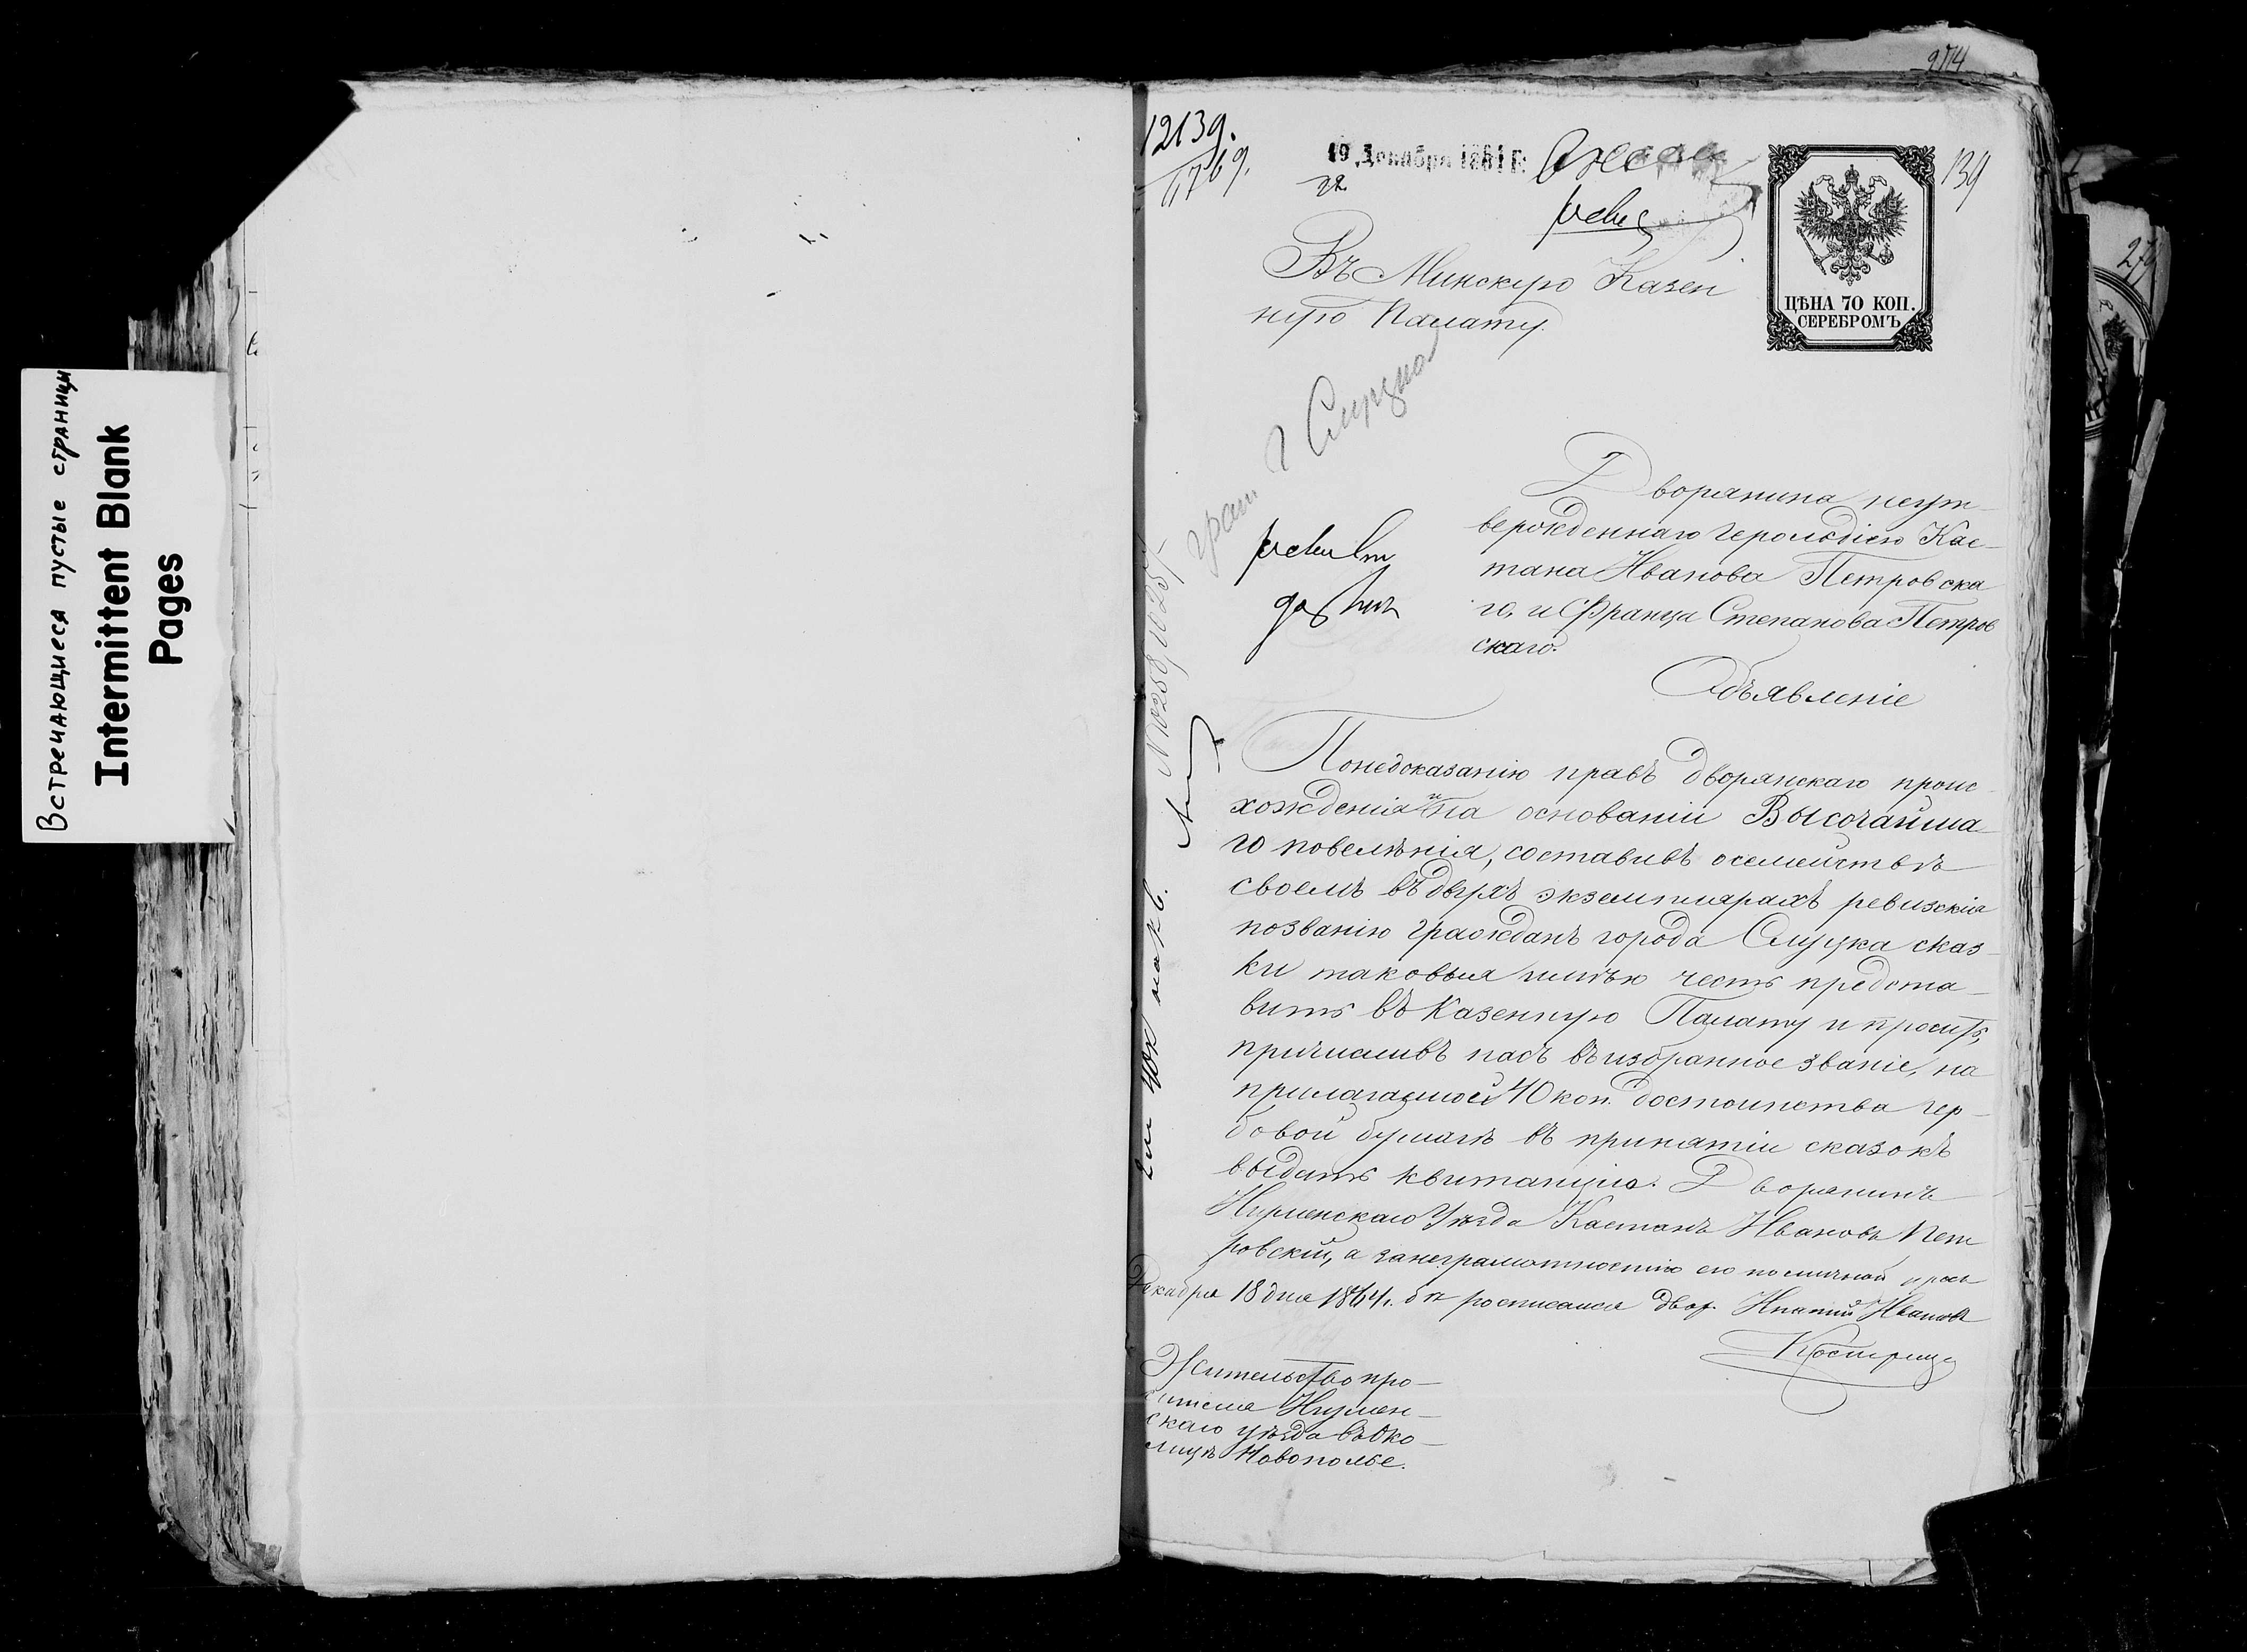 Встречающиеся пустые страницы
Intermittent Blank
Pages
274
12139.
1769.
19 Декабря 1861 г.
22
139
ЦѢНА 70 КОП.
СЕРЕБРОМЪ
Въ Минскую Казен
ную Палату.
Дворянина неут-
вержденнаго Герольдіею Кае-
тана Иванова Петровска
го, и Франца Степанова Петров
скаго.
Объявленіе
Понедоказанію правъ дворянскаго проис-
хожденія и на основаніи Высочайша-
го повелѣнія, составивъ осемействѣ
своемъ въ двухъ экземплярахъ ревизскія
позванію гражданъ города Слуцка сказ-
ки таковыя имѣю честь предста-
вить въ Казенную Палату и просить,
причисливъ насъ въ избранное званіе, на
прилагаемой 40 коп. достоинства гер-
бовой бумагѣ въ принятіи сказокъ
выдать квитанцію. Дворянинъ
Игуменскаго Уѣзда Каетанъ Ивановъ Пет
ровскій, а занеграмотностію его по личной прось
Декабря 18 дня 1864 г. бѣ росписался двор. Ипатій Ивановъ
Жительство про-
сителя Игумен-
скаго уѣзда въ око-
лицѣ Новополье.